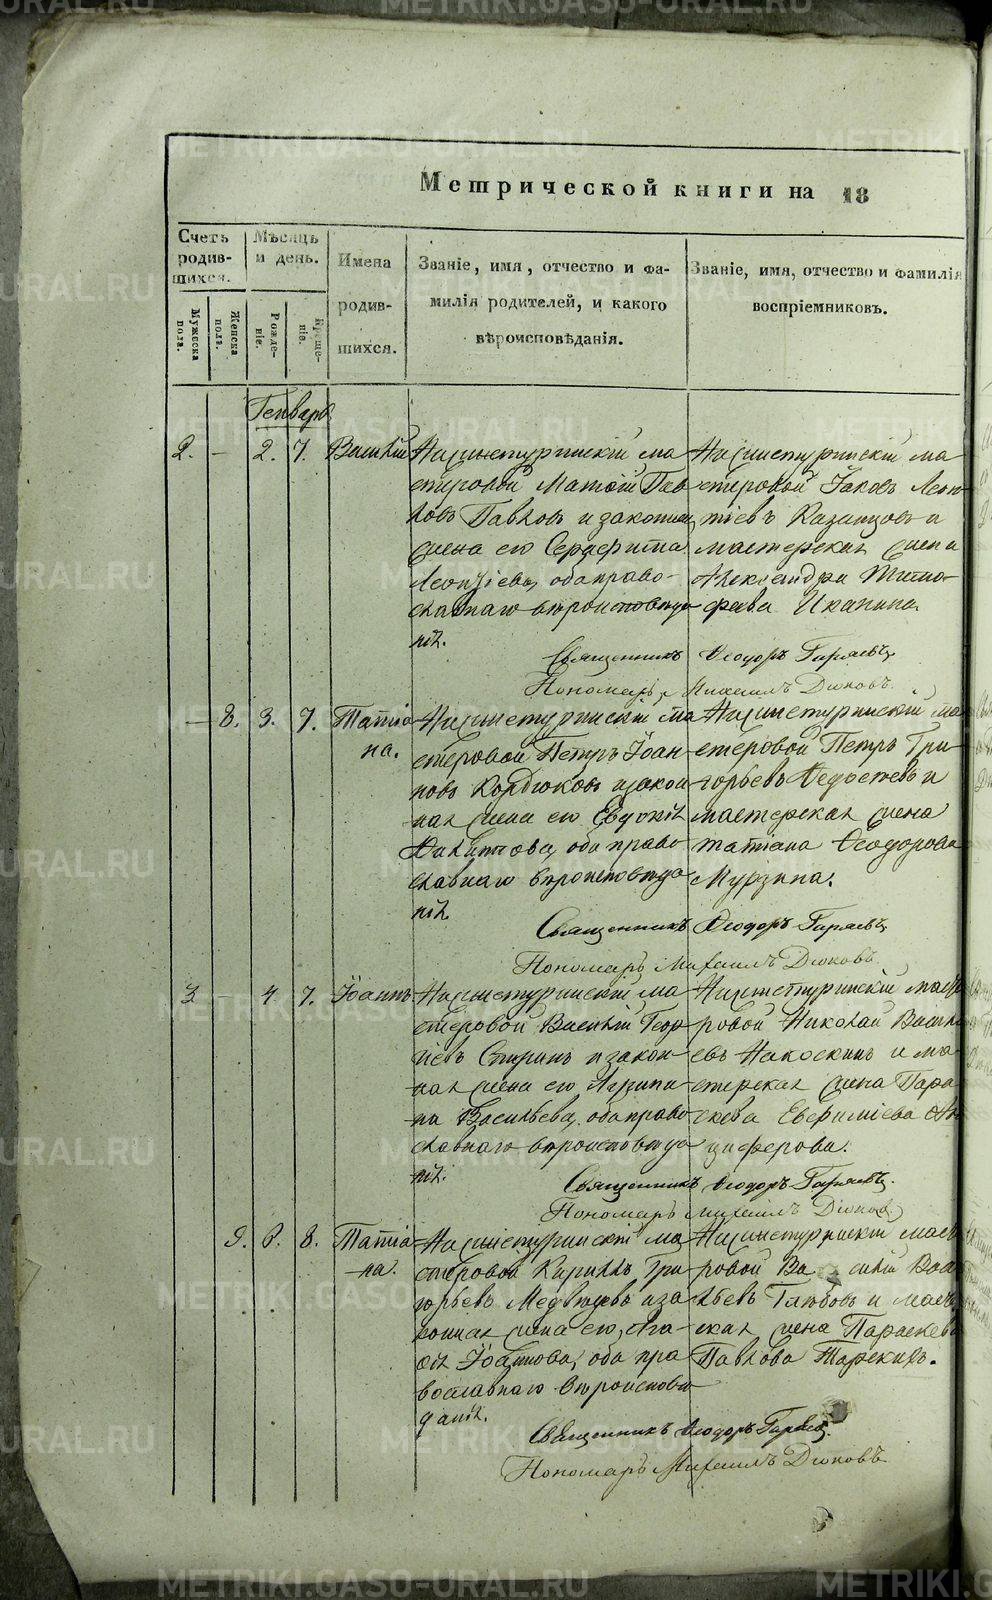 Метрической книги на 18
Счетъ родив-шихся.
Мѣсяцъ и день.
Имена родив-шихся.
Званіе, имя, отчество и фа-
милія родителей, и какого
вѣроисповѣданія.
Званіе, имя, отчество и фамилія
воспріемниковъ.
Мужеска пола.
Женска полъ.
Рожде-ніе.
Креще-нія.
Генварь
2. — 2. 7. Василій
Нижнетуринскій ма
стеровой Матѳій Пав
ловъ Павловъ и законная
жена его Серафима
Леонтіева, оба право-
славнаго вѣроисповѣда
нія.
Нижнетуринскій ма-
стеровой Іаковъ Леон
тіевъ Казанцовъ и
мастерская жена
Александра Тимо-
феева
Священникъ Ѳеодоръ
Пономарь Михаилъ Дюковъ.
— 8. 3. 7. Татіа
на.
Нижнетуринскій ма
стеровой Петръ Іоан-
новъ и закон
ная жена его Евдокія
Никитова, оба право
славнаго вѣроисповѣда
нія
Нижнетуринскій ма
стеровой Петръ Гри-
горьевъ Ѳедосѣевъ и
мастерская жена
Татіана Ѳеодорова
Мурзина.
Священникъ Ѳеодоръ
Пономарь Михаилъ Дюковъ.
3. — 4 7. Іоаннъ
Нижнетуринскій ма
стеровой Василій Геор
гіевъ и закон-
ная жена его Агрипи-
на Васильева, оба право
славнаго вѣроисповѣда
нія.
Нижнетуринскій масте
ровой Николай Василь
евъ и ма-
стерская жена Пара
скева Евфиміева Ан
циферова.
Священникъ Ѳеодоръ
Пономарь Михаилъ Дюковъ
9. 6. 8. Татіа
на.
Нижнетуринскій ма
стеровой Кириллъ Гри
горьевъ Медвѣдевъ и за
конная жена его, Ага-
фія Іоаннова, оба пра
вославнаго вѣроисповѣ
данія.
Нижнетуринскій масте
ровой Ва силій Вас
льевъ Глѣбовъ и масте
ская жена Параскева
Павлова
Священникъ Ѳеодоръ
Пономарь Михаилъ Дюковъ
METRIKI.GASO-URAL.RU